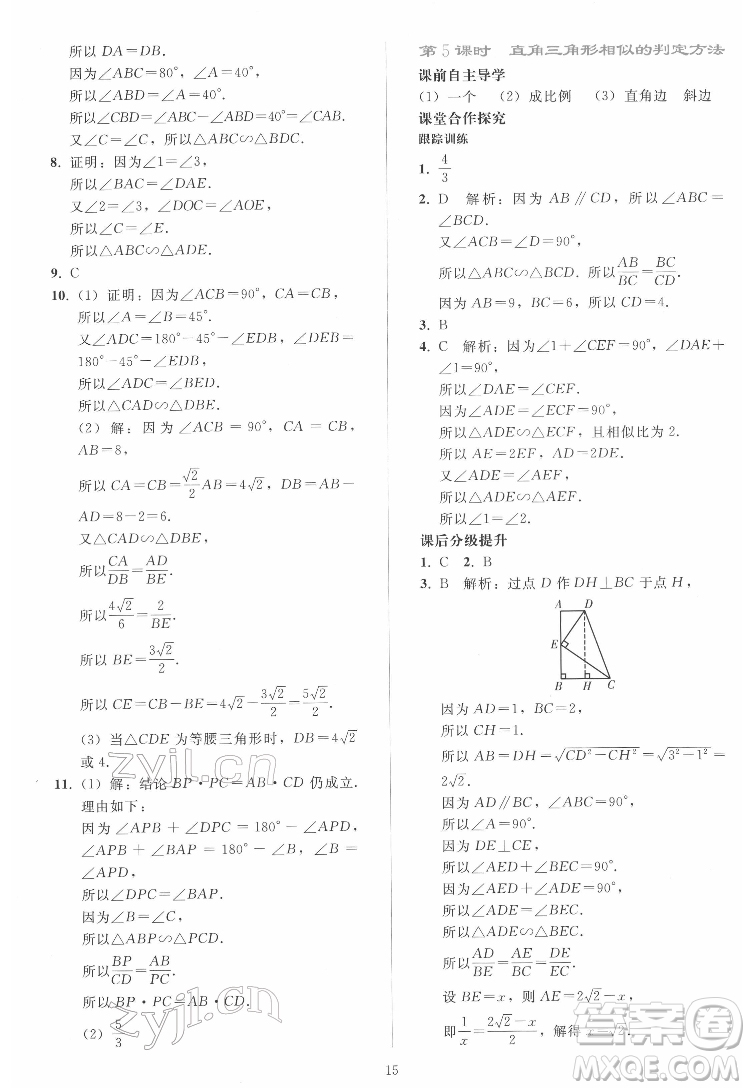 所以 DA=DB.
因为∠ABC=80°,
所以∠ABD=∠A=40°.
所以∠CBD=∠ABC-∠ABD=40°=∠A.
又∠C=∠C, 所以△ABC∽△BDC.
8. 证明: 因为∠1=∠3,
所以∠BAC=∠DAE.
又∠2=∠3, ∠DOC=∠AOE,
所以∠C=∠E.
所以△ABC∽△ADE.
9. C
10. (1) 证明: 因为∠ACB=90°, CA=CB,
所以∠A=∠B=45°.
又∠ADC=180°-45°-∠EDB, ∠DEB=
180°-45°-∠EDB,
所以∠ADC=∠BED.
所以△CAD∽△DBE.
(2) 解: 因为∠ACB = 90°, CA = CB,
AB=8,
所以 CA=CB=√2/2 AB=4√2, DB=AB-
AD=8-2=6.
又△CAD∽△DBE,
所以 CA/DB=AD/BE.
所以 4√2/6=2/BE.
所以 BE=3√2/2.
所以 CE=CB-BE=4√2-3√2/2=5√2/2.
(3) 当△CDE 为等腰三角形时, DB=4√2
或4.
11. (1) 解: 结论 BP·PC=AB·CD 仍成立.
理由如下:
因为 ∠APB + ∠DPC = 180° - ∠APD,
∠APB + ∠BAP = 180° - ∠B, ∠B =
∠APD,
所以∠DPC=∠BAP.
因为∠B=∠C,
所以△ABP∽△PCD.
所以 BP/CD=AB/PC.
所以 BP·PC=AB·CD.
(2) 5/3
第5课时 直角三角形相似的判定方法
课前自主导学
(1) 一个 (2) 成比例 (3) 直角边 斜边
课堂合作探究
跟踪训练
1. 4/3
2. D 解析: 因为 AB∥CD, 所以∠ABC=
∠BCD.
又∠ACB=∠D=90°,
所以△ABC∽△BCD. 所以 AB/BC=BC/CD.
因为 AB=9, BC=6, 所以 CD=4.
3. B
4. C 解析: 因为∠1+∠CEF=90°, ∠DAE+
∠1=90°,
所以∠DAE=∠CEF.
又∠ADE=∠ECF=90°,
所以△ADE∽△ECF, 且相似比为2.
所以 AE=2EF, AD=2DE.
又∠ADE=∠AEF,
所以△ADE∽△AEF.
所以∠1=∠2.
课后分级提升
1. C 2. B
3. B 解析: 过点 D 作 DH⊥BC 于点 H,
A D
E
B H C
因为 AD=1, BC=2,
所以 CH=1.
所以 AB=DH=√(CD²-CH²)=√(3²-1²)=
2√2.
因为 AD∥BC, ∠ABC=90°,
所以∠A=90°.
因为 DE⊥CE,
所以∠AED+∠BEC=90°.
因为∠AED+∠ADE=90°,
所以∠ADE=∠BEC.
所以△ADE∽△BEC.
所以 AD/BE=AE/BC=DE/EC.
设 BE=x, 则 AE=2√2-x,
即 1/x=(2√2-x)/2, 解得 x=√2.
15
zyjl.cn
zyjl.cn
答案圈
MXQE.COM